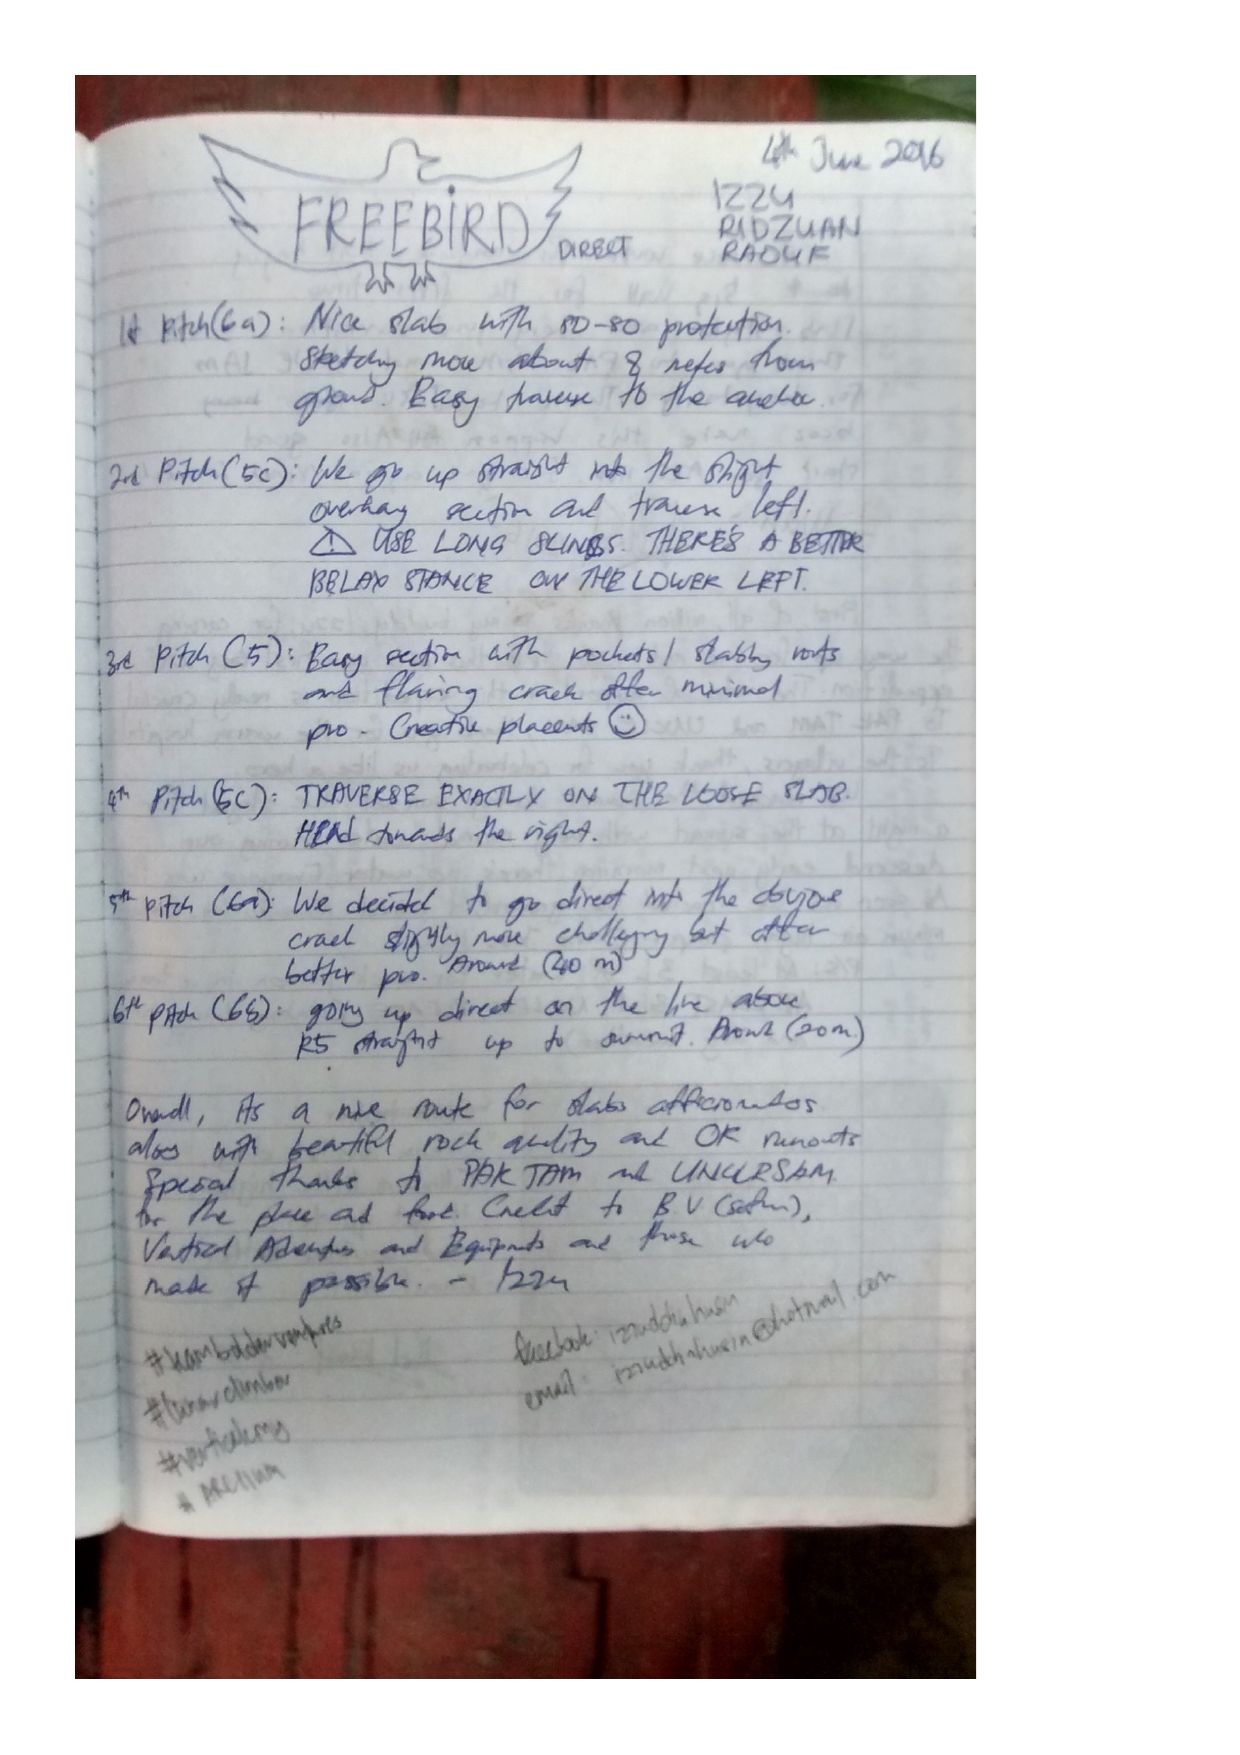 4th June 2016
IZZU
RIDZUAN
RAOUF
FREEBIRD
DIRECT
1st Pitch (6a): Nice slab with 50-80 protection.
Sketchy move about 8 metes from
ground. Easy traverse to the anchor.
2nd Pitch (5c): We go up straight into the slight
overhang section and traverse left.
⚠ USE LONG SLINGS. THERE'S A BETTER
BELAY STANCE ON THE LOWER LEFT.
3rd Pitch (5): Easy section with pockets / slabby
and flaring crack offer minimal
pro. Creative placents ☺
4th Pitch (5c): TRAVERSE EXACTLY ON THE LOOSE SLAB.
HEAD towards the right.
5th Pitch (6a): We decided to go direct into the
crack slightly more challenging but offer
better pro. Around (40 m)
6th Pitch (6b): going up direct on the line above
R5 straight up to summit. Around (20m)
Overall, its a nice route for slabs afficionados
also with beautiful rock quality and OK runouts
Special thanks to PAK TAM and
for the place and food. Credit to B.V (Safuan),
Vertical Adventures and Equipments and those who
made it possible. - Izzu
facebook: izzuddinhusin
email: izzuddinhusin@hotmail.com
#lunarclimber